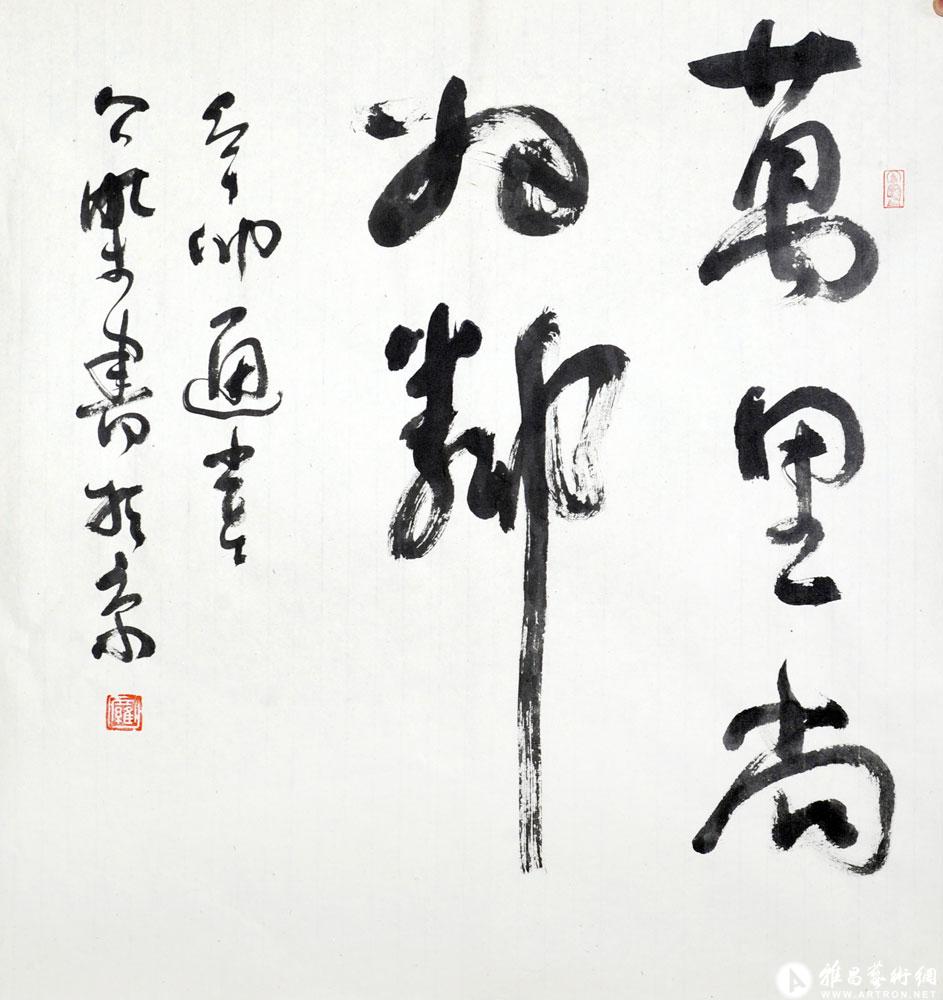 萬里尚
為鄰
辛卯通
書於京
雅昌藝術網
WWW.ARTRON.NET